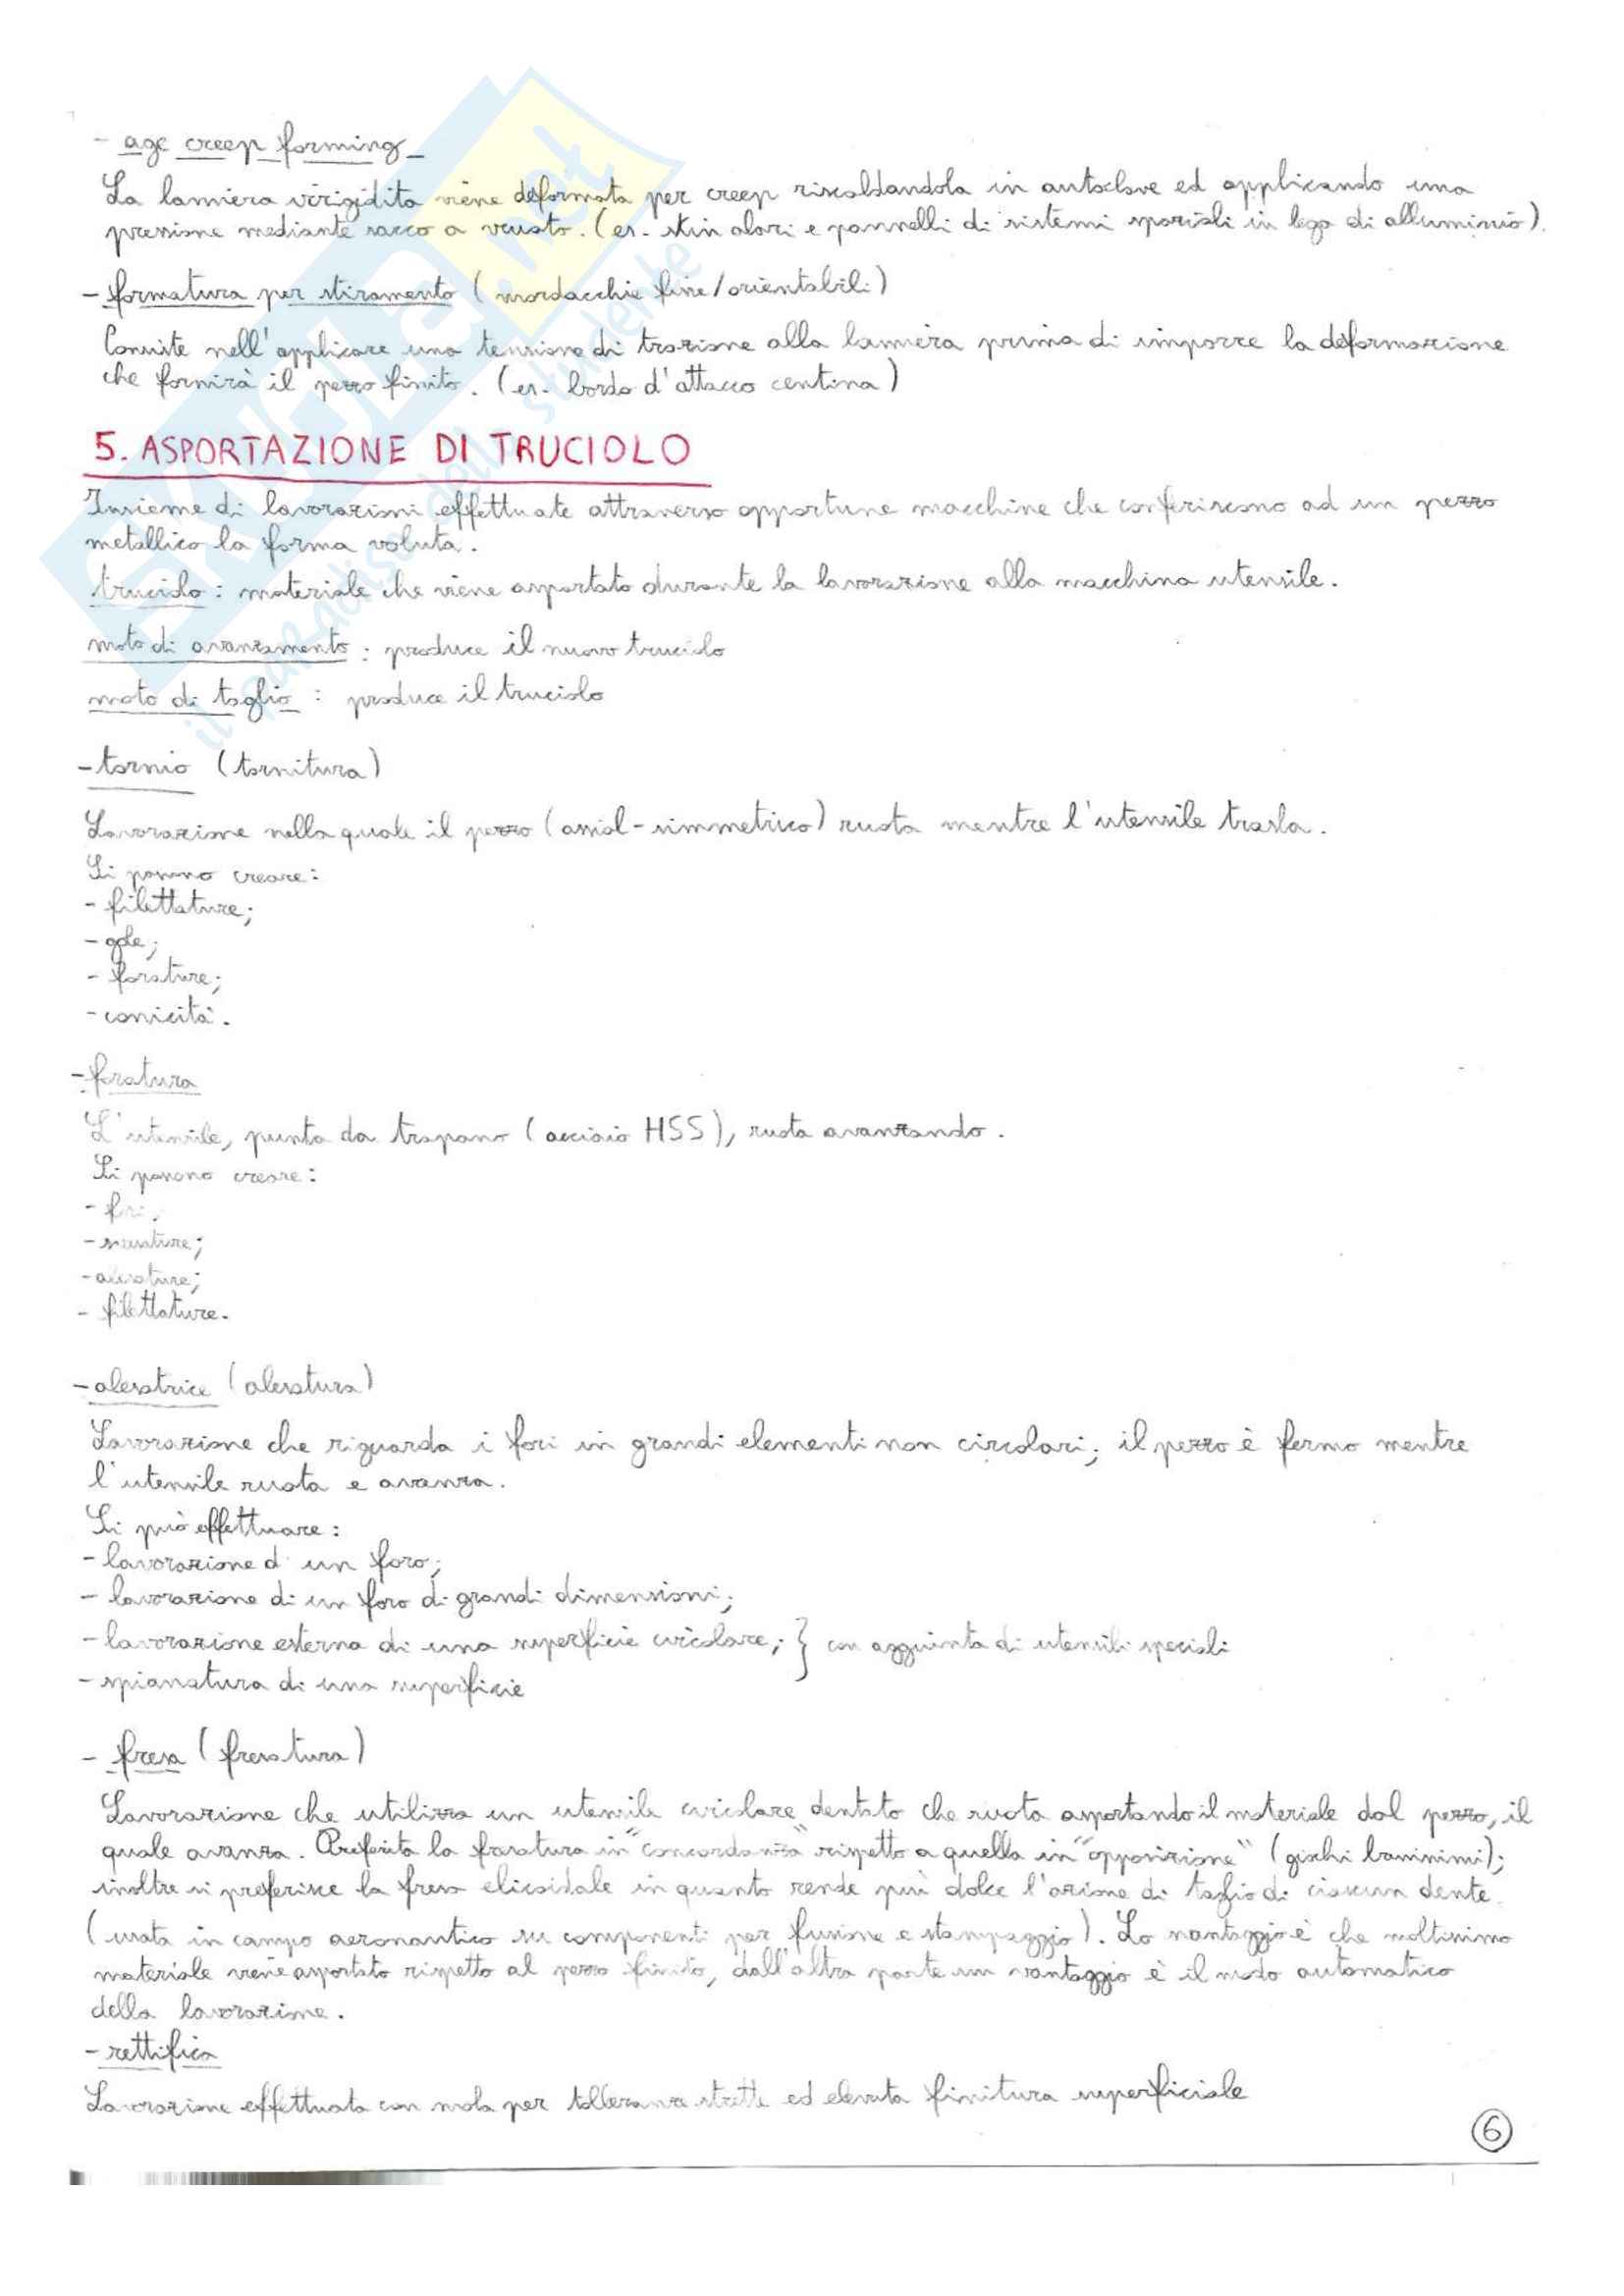 - age creep forming
La lamiera irrigidita viene deformata per creep riscaldandola in autoclave ed applicando una
pressione mediante sacco a vuoto. (es. skin alari e pannelli di sistemi spaziali in lega di alluminio).
- formatura per stiramento (mordacchie fine/orientabili)
Consiste nell'applicare una tensione di trazione alla lamiera prima di imporre la deformazione
che fornirà il pezzo finito. (es. bordo d'attacco centina)
5. ASPORTAZIONE DI TRUCIOLO
Insieme di lavorazioni effettuate attraverso opportune macchine che conferiscono ad un pezzo
metallico la forma voluta.
truciolo: materiale che viene asportato durante la lavorazione alla macchina utensile.
moto di avanzamento: produce il nuovo truciolo
moto di taglio: produce il truciolo
- tornio (tornitura)
Lavorazione nella quale il pezzo (assial-simmetrico) ruota mentre l'utensile trasla.
Si possono creare:
- filettature;
- gole;
- forature;
- conicità.
- foratura
L'utensile, punta da trapano (acciaio HSS), ruota avanzando.
Si possono creare:
- fori;
- svasature;
- alesature;
- filettature.
- alesatrice (alesatura)
Lavorazione che riguarda i fori in grandi elementi non circolari; il pezzo è fermo mentre
l'utensile ruota e avanza.
Si può effettuare:
- lavorazione di un foro;
- lavorazione di un foro di grandi dimensioni;
- lavorazione esterna di una superficie circolare; } con aggiunta di utensili speciali
- spianatura di una superficie
- fresa (fresatura)
Lavorazione che utilizza un utensile circolare dentato che ruota asportando il materiale dal pezzo, il
quale avanza. Preferita la fresatura in "concordanza" rispetto a quella in "opposizione" (giochi bassissimi);
inoltre si preferisce la fresa elicoidale in quanto rende più dolce l'azione di taglio di ciascun dente.
(usata in campo aeronautico su componenti per fusione e stampaggio). Lo svantaggio è che moltissimo
materiale viene asportato rispetto al pezzo finito, dall'altra parte un vantaggio è il modo automatico
della lavorazione.
- rettifica
Lavorazione effettuata con mola per tolleranze strette ed elevata finitura superficiale
6